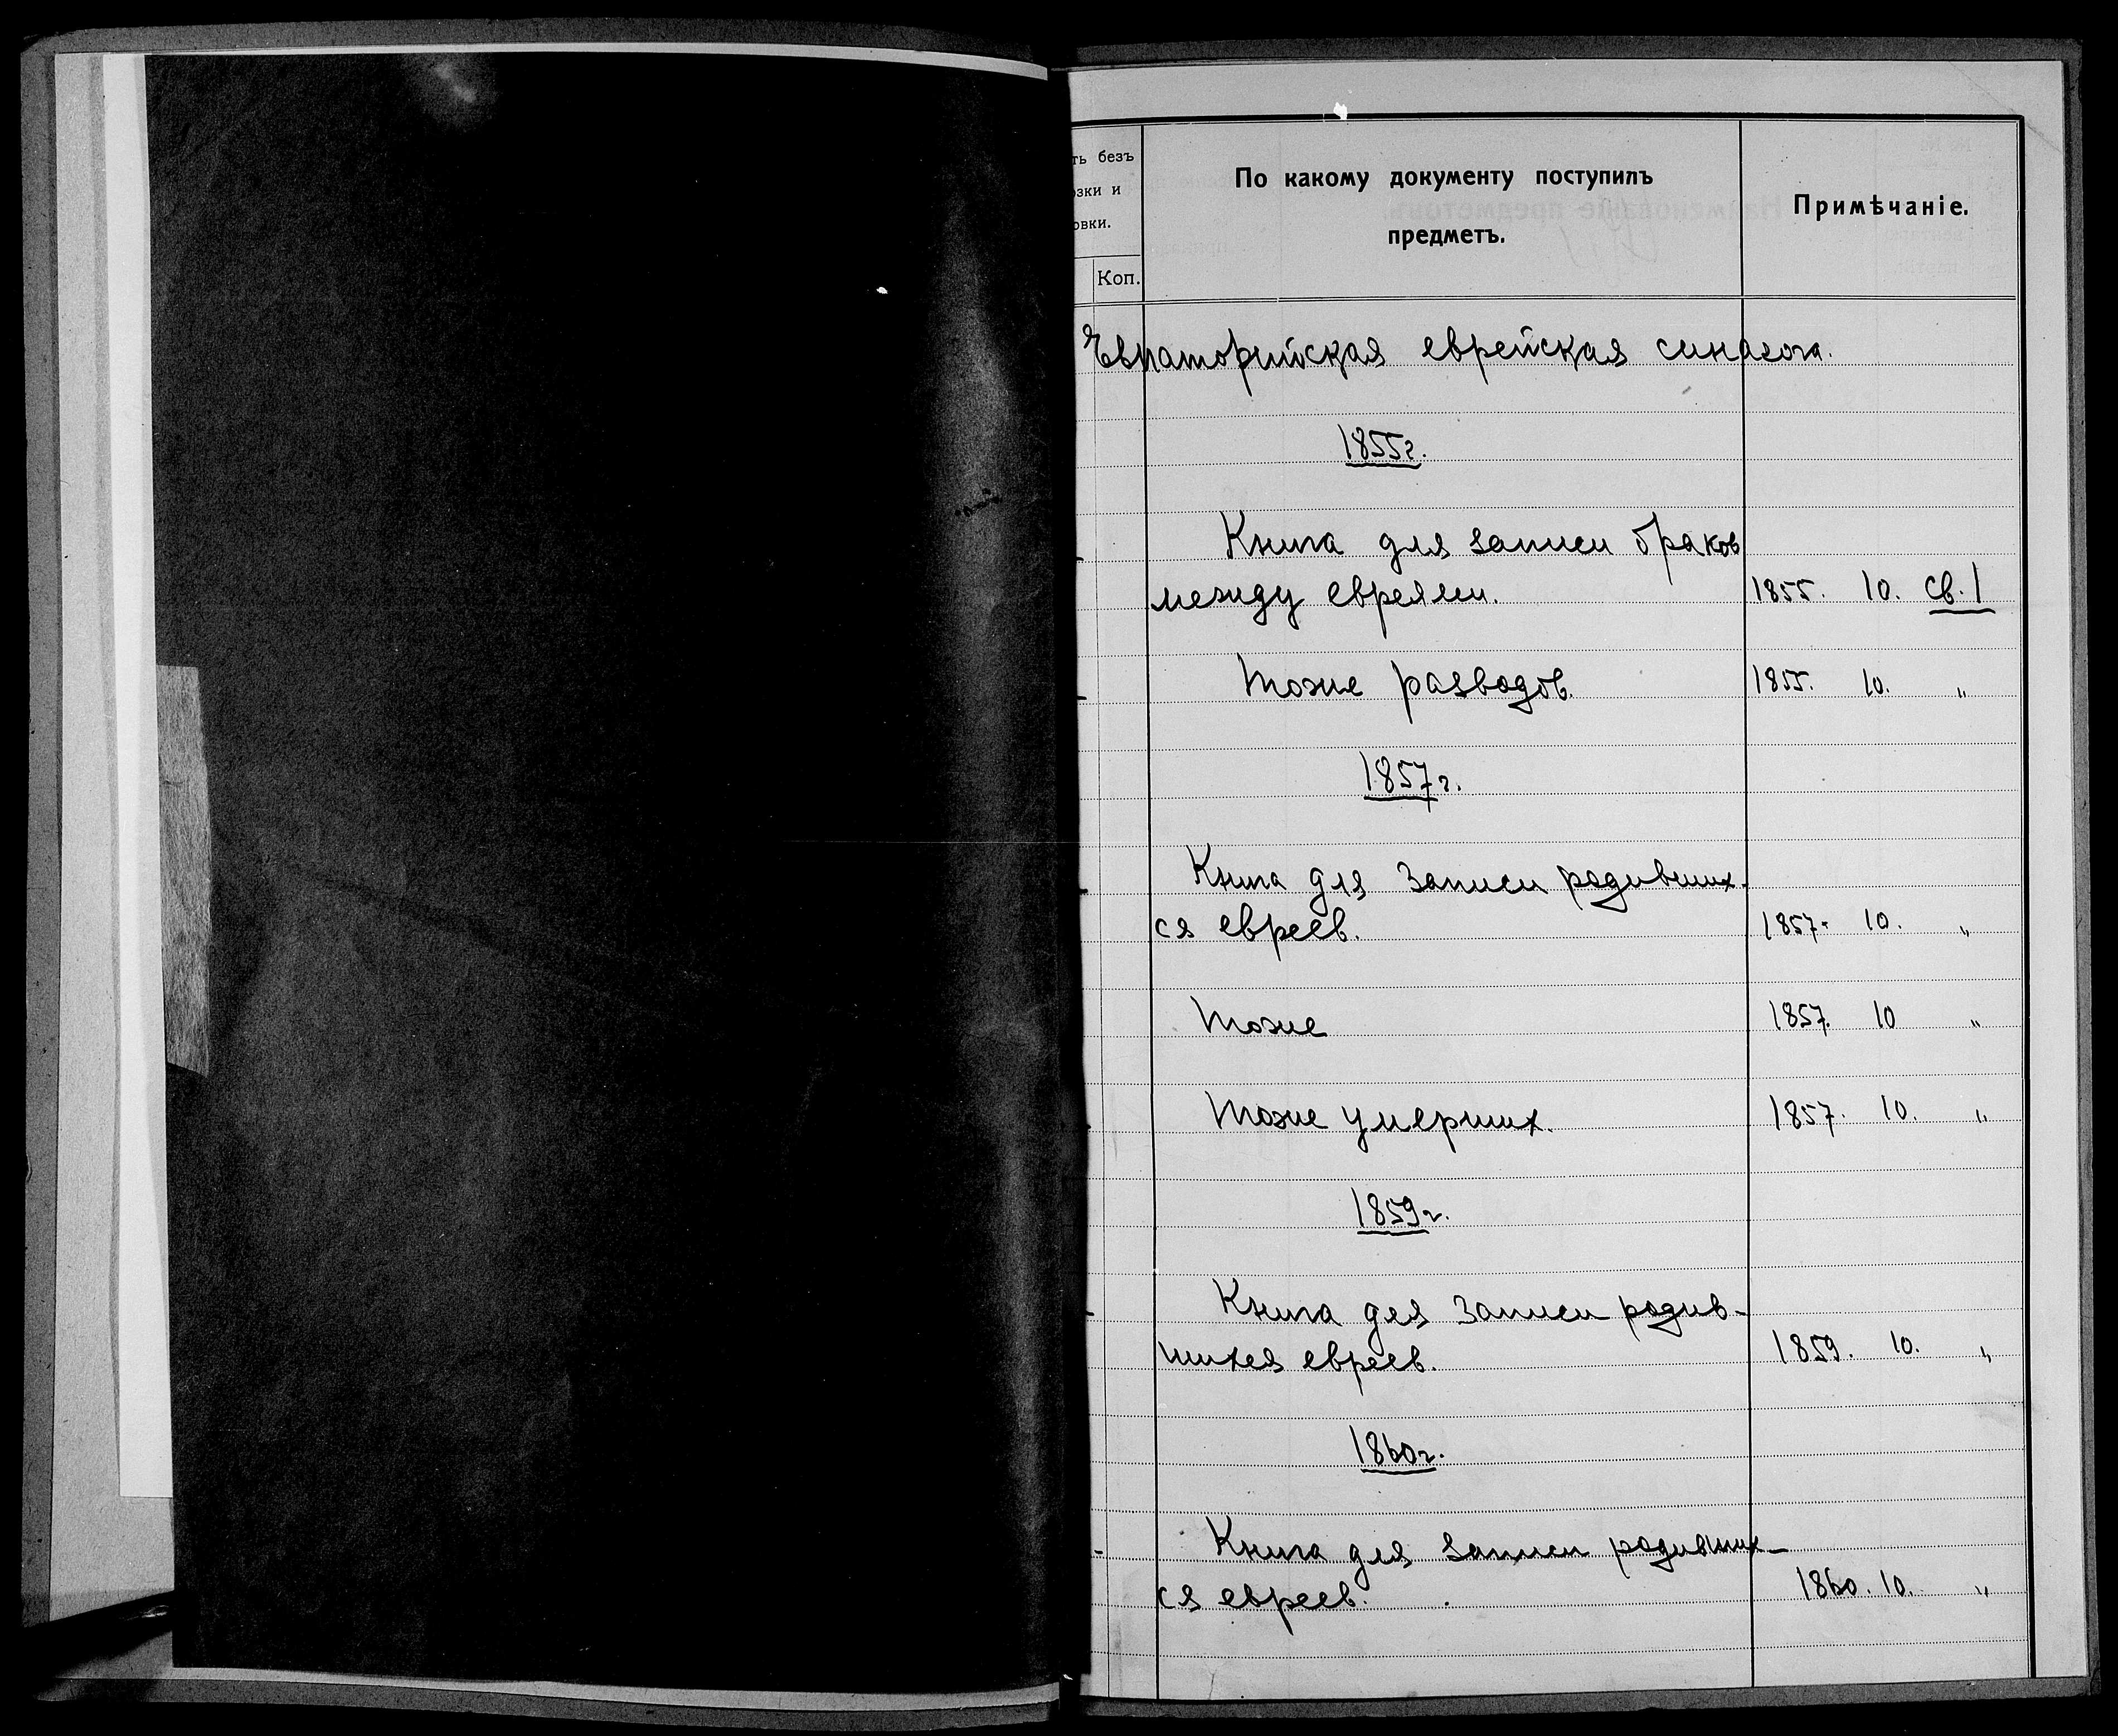 ть безъ
озки и
овки.
Коп.
По какому документу поступилъ
предметъ.
Примѣчаніе.
Евпаторийская еврейская синагога.
1855г.
Книга для записи браков
между евреями. 1855. 10. св. 1
Тоже разводов. 1855. 10. "
1857г.
Книга для записи родивших-
ся евреев. 1857. 10. "
Тоже 1857. 10 "
Тоже умерших. 1857. 10. "
1859г.
Книга для записи родив-
шихся евреев. 1859. 10. "
1860г.
Книга для записи родивших-
ся евреев. 1860. 10. "